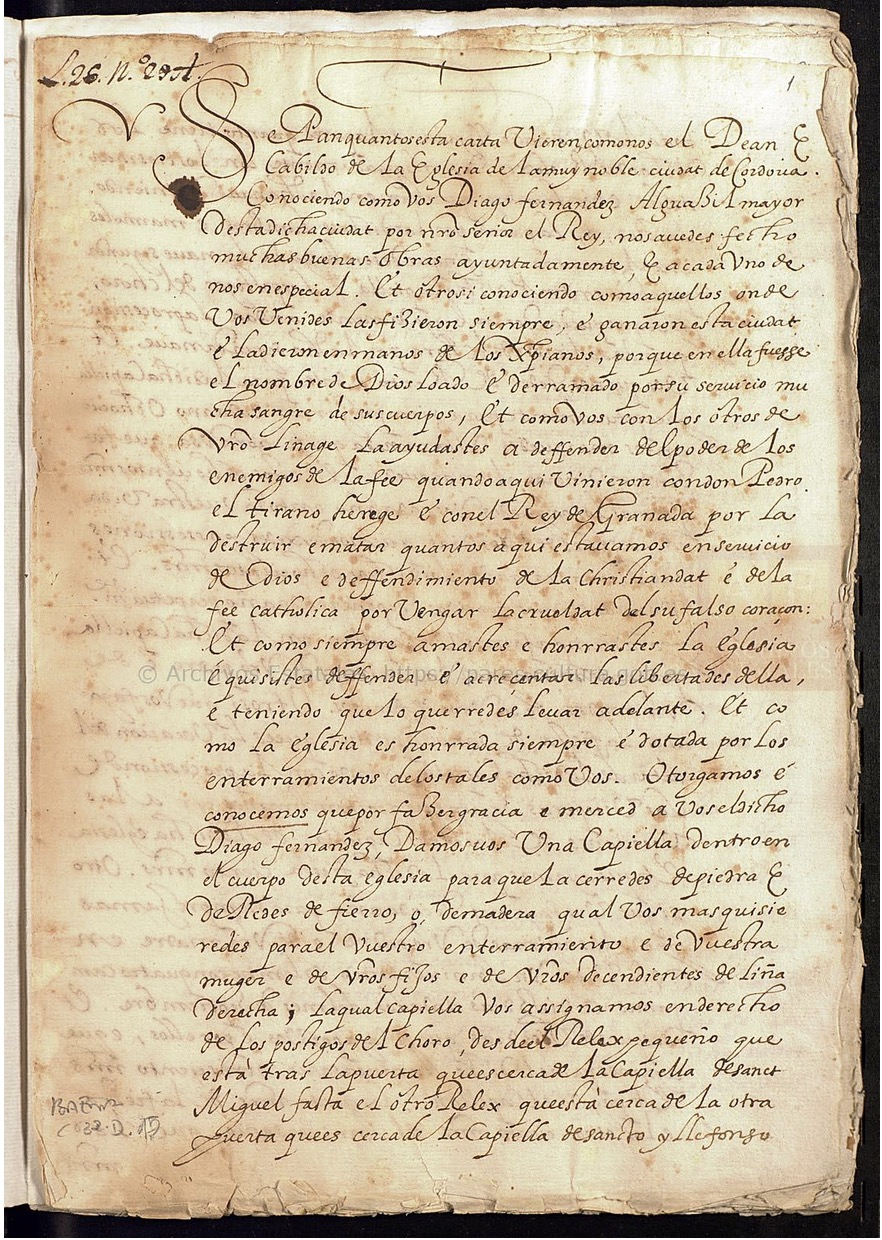 L.26. N.º 29
1
Sepan quantos esta carta Vieren, como nos el Dean &
Cabildo de la Eglesia de la muy noble ciudat de Cordoua.
Conociendo como Vos Diago fernandez Alguaßil mayor
desta dicha ciudat por nrõ señor el Rey, nos auedes fecho
muchas buenas obras ayuntadamente, & a cada Vno de
nos en especial. Et otrosi conociendo como aquellos, onde
Vos Venides las fißieron siempre, é ganaron esta ciudat
é la dieron en manos de los Xpianos, porque en ella fuesse
el nombre de Dios loado é derramado por su seruicio mu
cha sangre de sus cuerpos, Et como Vos con los otros de
vrõ linage la ayudastes a deffender del poder de los
enemigos de la fee quando aqui Vinieron con don Pedro
el tirano herege é con el Rey de Granada por la
destruir e matar quantos aqui estauamos en seruicio
de Dios e deffendimiento de la Christiandat é de la
fee catholica por Vengar la crueldat del su falso coraçon:
Et como siempre amastes e honrrastes la Eglesia
é quisistes deffender é acrecentar las libertades della,
e teniendo que lo querredes leuar adelante. Et co
mo la Eglesia es honrrada siempre é dotada por los
enterramientos de los tales como Vos. Otorgamos é
conocemos que por faßer gracia e merced a Vos el dicho
Diago fernandez, Damos uos Una Capiella dentro en
el cuerpo desta eglesia para que la cerredes de piedra &
de Redes de fierro, o, de madera qual Vos mas quisie
redes para el Vuestro enterramiento e de Vuestra
muger e de vrõs fijos e de vrõs decendientes de liña
derecha; la qual capiella Vos assignamos en derecho
de los postigos del Choro, desde el Relex pequeño que
està tras la puerta que es cerca de la Capiella de sanct
Miguel fasta el otro Relex que està cerca de la otra
puerta que es cerca de la Capiella de sancto yllefonso
© Archivos Estatales, https://pares.cultura.gob.es